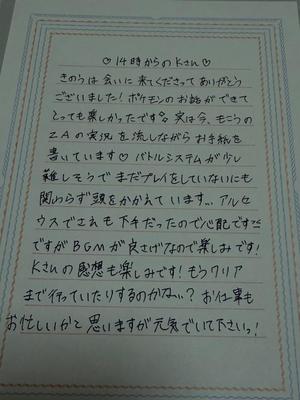 ♡14時からのKさん♡
きのうは会いに来てくださってありがとう
ございました!ポケモンのお話ができて
とっても楽しかったです 実は今、もこうの
ZAの実況を流しながらお手紙を
書いています♡ バトルシステムが少し
難しそうでまだプレイをしていないにも
関わらず頭をかかえています… アルセ
ウスでさえも下手だったので心配です
ですがBGMが良さげなので楽しみです!
Kさんの感想も楽しみです!もうクリア
まで行っていたりするのかな…?お仕事も
お忙しいかと思いますが元気でいて下さいっ!